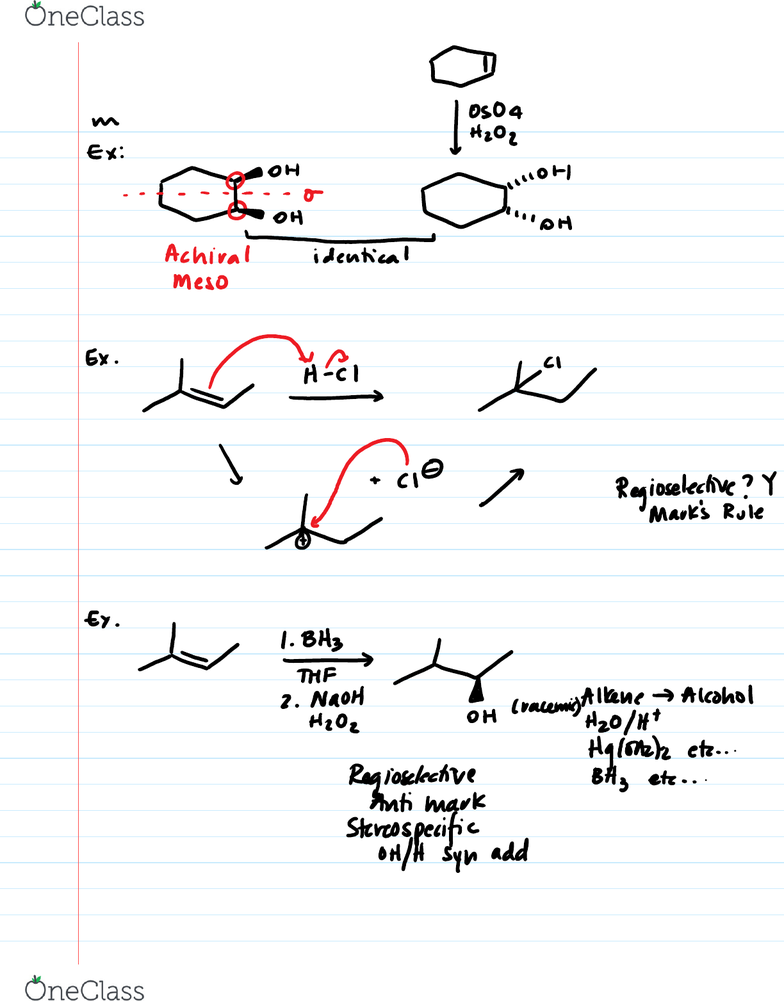 OneClass
OsO4
H2O2
m
Ex:
OH
OH
σ
OH
OH
Achiral
Meso
identical
Ex.
H-Cl
Cl
+ Cl⊖
⊕
Regioselective? Y
Mark's Rule
Ex.
1. BH3
THF
2. NaOH
H2O2
OH
(racemic)
Alkene → Alcohol
H2O/H+
Hg(OAc)2 etc...
BH3 etc...
Regioselective
Anti mark
Stereospecific
OH/H syn add
OneClass